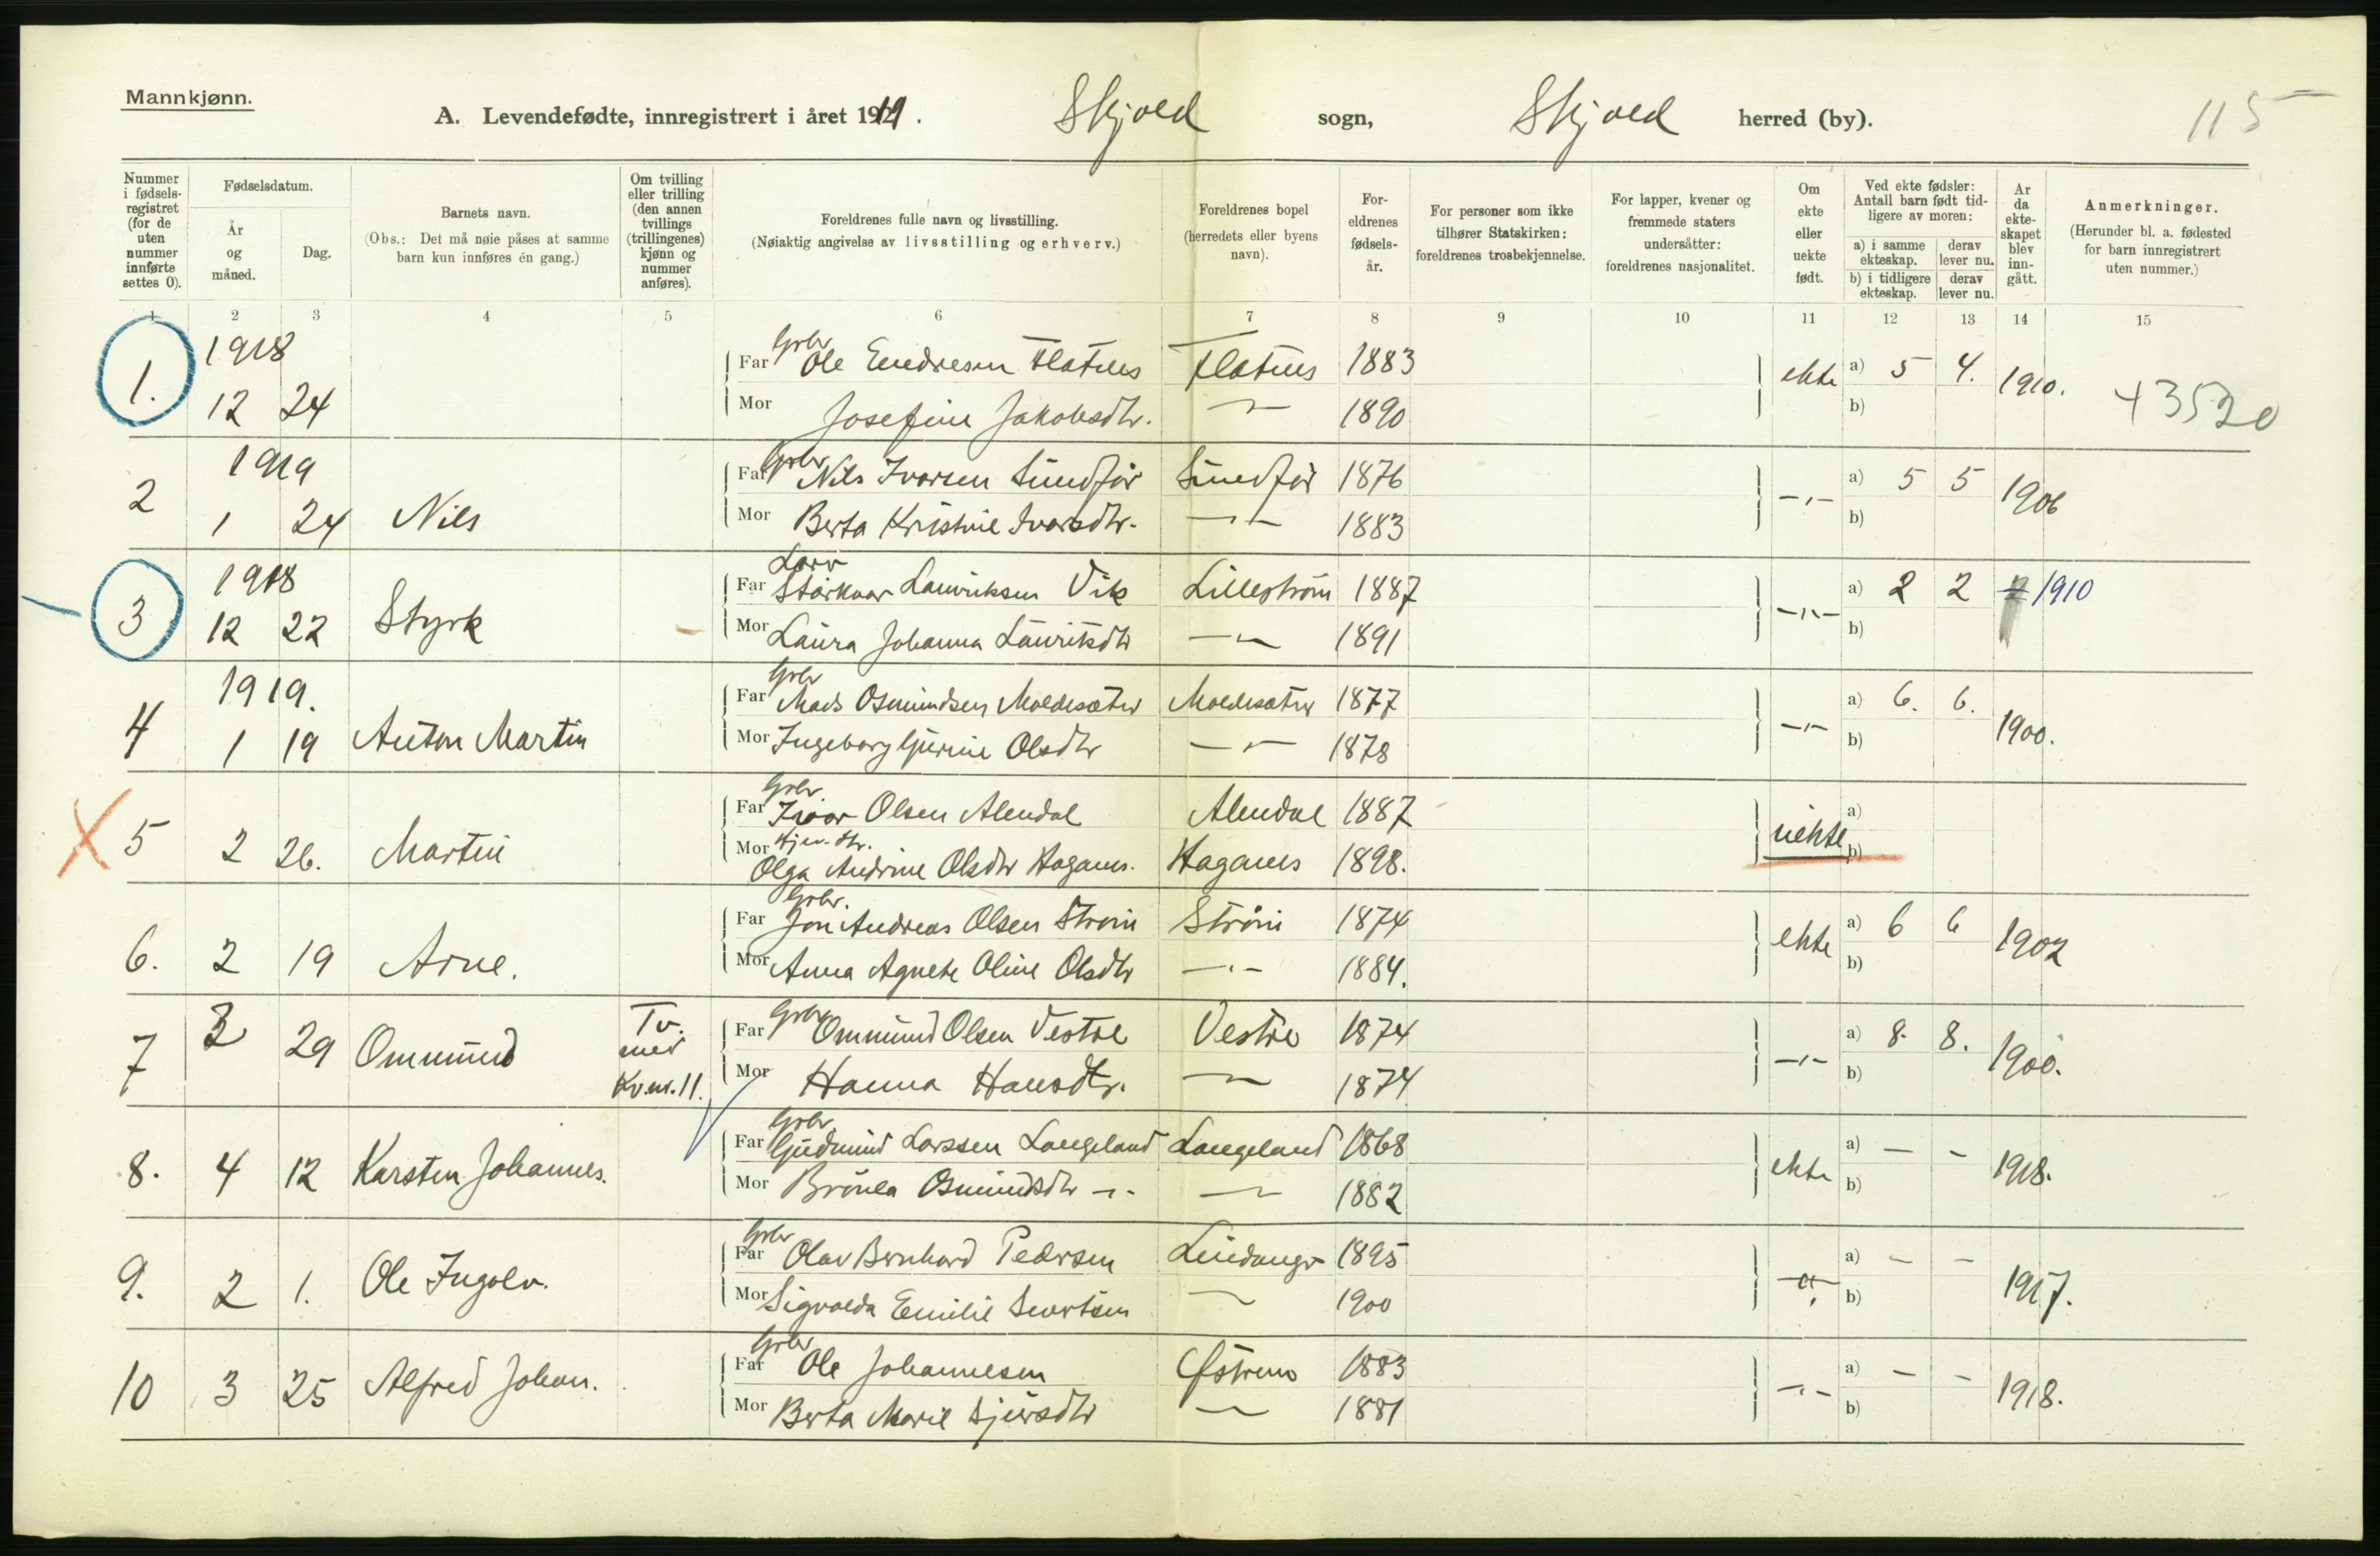 Mannkjønn.
A. Levendefødte, innregistrert i året 1919. Skjold sogn, Skjold herred (by). 115
Nummer i fødsels-registret (for de uten nummer innførte settes 0).
Fødselsdatum.
År og måned.
Dag.
Barnets navn.
(Obs.: Det må nøie påses at samme barn kun innføres én gang.)
Om tvilling eller trilling (den annen tvillings (trillingenes) kjønn og nummer anføres).
Foreldrenes fulle navn og livsstilling.
(Nøiaktig angivelse av livsstilling og erhverv.)
Foreldrenes bopel (herredets eller byens navn).
For-eldrenes fødsels-år.
For personer som ikke tilhører Statskirken: foreldrenes trosbekjennelse.
For lapper, kvener og fremmede staters undersåtter: foreldrenes nasjonalitet.
Om ekte eller uekte født.
Ved ekte fødsler: Antall barn født tid-ligere av moren:
a) i samme ekteskap.
derav lever nu.
b) i tidligere ekteskap.
derav lever nu.
Ar da ekte-skapet blev inn-gått.
Anmerkninger.
(Herunder bl. a. fødested for barn innregistrert uten nummer.)
1 2 3 4 5 6 7 8 9 10 11 12 13 14 15
1. 1918 12 24 Far Grbr Ole Endresen Flatnes Flatnes 1883 ekte a) 5 4. 1910. +3520
Mor Josefine Jakobsdtr. -"- 1890 b)
2 1919 1 24 Nils Far Grbr Nils Ivarsen Sundfør Sundfør 1876 -"- a) 5 5 1906
Mor Berta Kristine Ivarsdtr. -"- 1883 b)
3 1918 12 22 Styrk Far Starkaar Lauriksen Vik Lillestrøm 1887 -"- a) 2 2 1910
Mor Laura Johanna Lauritsdtr -"- 1891 b)
4 1919. 1 19 Anton Martin Far Grbr Mads Osmundsen Moldesæter Moldesæter 1877 -"- a) 6. 6. 1900.
Mor Ingeborg Gurine Olsdtr -"- 1878 b)
5 2 26. Martin Far Grbr. Ivar Olsen Alendal Alendal 1887 uekte a)
Mor Hjem. dtr. Olga Andrine Olsdtr Haganes. Haganes 1898. b)
6. 2 19 Arne. Far Grbr. Jon Andreas Olsen Strøm Strøm 1874 ekte a) 6 6 1902
Mor Anna Agnete Oline Olsdtr -"- 1884. b)
7 29 Ommund Tv. med Kv.nr. 11. Far Grbr Ommund Olsen Vestre Vestre 1874 -"- a) 8. 8. 1900.
Mor Hanna Hansdtr. -"- 1874 b)
8. 4 12 Karsten Johannes. Far Grbr Gudmund Larssen Langeland Langeland 1868 ekte a) - - 1918.
Mor Osmundsdtr -"- -"- 1882 b)
9. 2 1. Ole Ingolv. Far Grbr Olav Bernhard Pedersen 1895 -"- a) - - 1917.
Mor Sigvalda Emilie Sivertsen -"- 1900 b)
10 3 25 Alfred Johan. Far Grbr Ole Johannesen Østrem 1883 -"- a) - - 1918.
Mor Berta Marie -"- 1881 b)